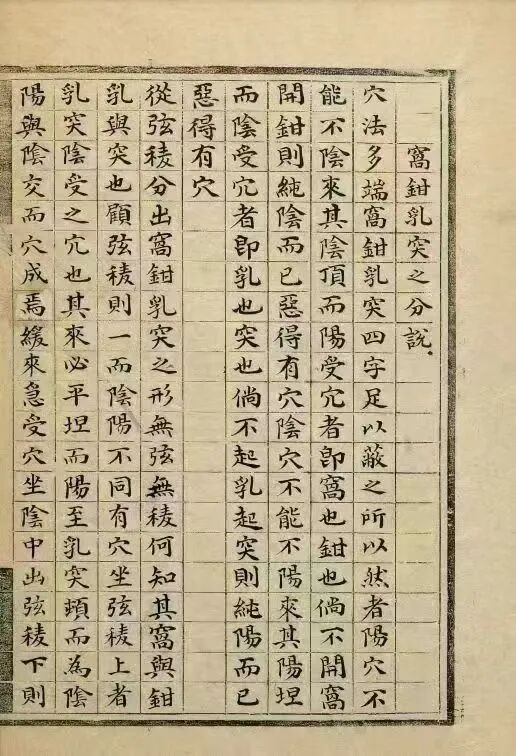 窩鉗乳突之分說
穴法多端窩鉗乳突四字足以蔽之所以然者陽穴不
能不陰來其陰頂而陽受穴者即窩也鉗也倘不開窩
開鉗則純陰而已惡得有穴陰穴不能不陽來其陽坦
而陰受穴者即乳也突也倘不起乳起突則純陽而已
惡得有穴
從弦稜分出窩鉗乳突之形無弦無稜何知其窩與鉗
乳與突也顧弦稜則一而陰陽不同有穴坐弦稜上者
乳突陰受之穴也其來必平坦而陽至乳突頓而為陰
陽與陰交而穴成焉緩來急受穴坐陰中出弦稜下則